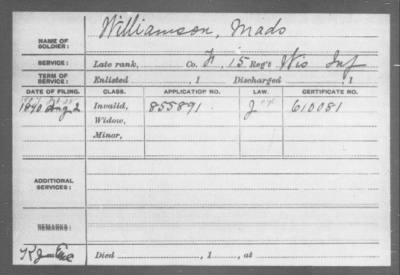 NAME OF SOLDIER: Williamson, Mads
SERVICE: Late rank, Co. F, 15 Reg't Wis Inf
TERM OF SERVICE: Enlisted , 1 Discharged , 1
DATE OF FILING. CLASS. APPLICATION NO. LAW. CERTIFICATE NO.
1890 Aug 2 Invalid, 855891 J 610081
Widow,
Minor,
ADDITIONAL SERVICES:
REMARKS:
Died , 1 , at